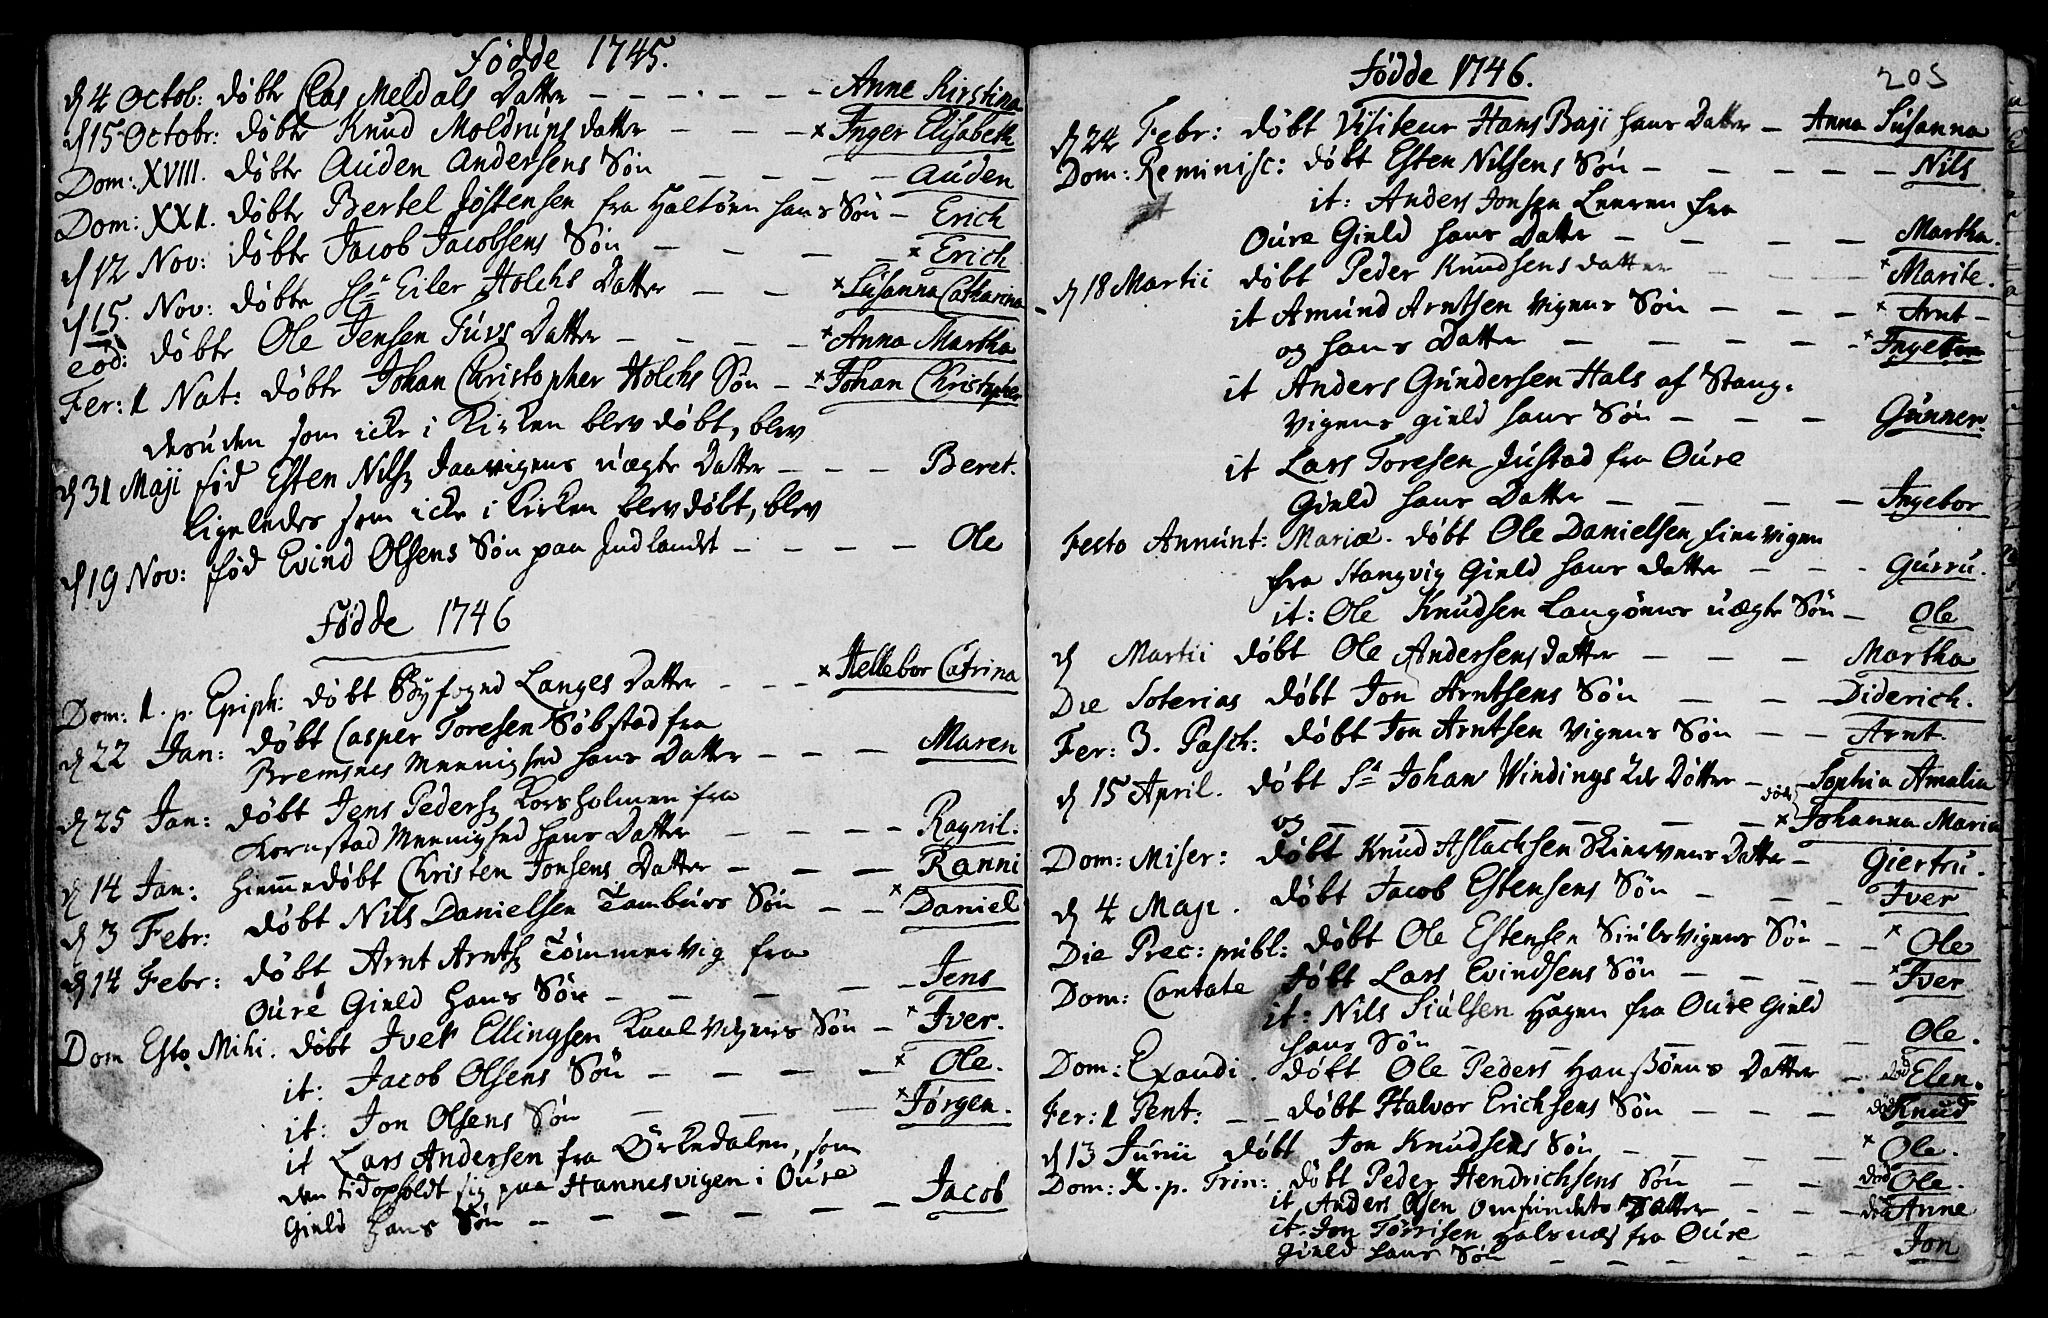 Födde 1745.
d 4 Octob: döbt Clas Meldals Datter - - - - - - Anne Kirstina
d 15 Octobr: döbt Knud Moldrups datter - - - × Inger Elisabeth
Dom: XVIII. döbt Auden Andersens Sön - - - - Auden
Dom: XXI. döbt Bertel Jöstensen fra Haltöen hans Sön - Erich
d 12 Nov: döbt Jacob Jacobsens Sön - - - - × Erich
d 15 Nov: döbt Sr Eiler Holchs Datter - - × Susanna Catharina
eod: döbt Ole Jensen Tuvs Datter - - - - × Anna Martha
Fer: 1 Nat: döbt Johan Christopher Holchs Sön - - × Johan Christopher
desuden som icke i Kirken blev döbt, blev
d 31 Maji föd Esten Nils Jaavigens uægte Datter - - - Beret.
Ligeledes som icke i Kirken blev döbt, blev
d 19 Nov: föd Evind Olsens Sön paa Indlandet - - - - Ole
Födde 1746
Dom: 1. p. Epiph: döbt Byfoged Langes Datter - - - × Hellebor Catrina
d 22 Jan: döbt Casper Toresen Söbstad fra
Bremsnes Meenighed hans Datter - - - Maren
d 25 Jan: döbt Jens Peders Korsholmen fra
Kornstad Meenighed hans Datter - - - - Ragnil:
d 14 Jan: hiemmedöbt Christen Jonsens Datter - - - Ranni
d 3 Febr: döbt Nils Danielsen Tamburs Sön - - × Daniel
d 14 Febr: döbt Arnt Arnts Tömmervig fra
Oure Gield hans Sön - - - - - Jens
Dom Esto Mihi. döbt Iver Ellingsen Kaalvigens Sön - × Iver.
it: Jacob Olsens Sön - - - - × Ole.
it: Jon Olsens Sön - - - × Jörgen.
it Lars Andersen fra Örkedalen, som
den tid opholdt sig paa Hannesvigen i Oure
Gield hans Sön - - - - - - - Jacob
Födde 1746.
205
d 24 Febr: döbt Visiteur Hans Baji hans Datter - Anna Susanna
Dom: Reminisc: döbt Esten Nilsens Sön - - - - - Nils
it: Anders Jonsen Leeren fra
Oure Gield hans Datter - - - - Martha.
d 18 Martii döbt Peder Knudsens datter - - - × Marite.
it Amund Arntsen Vigens Sön - - - × Arnt -
og hans Datter - - - - - - × Ingebor
it Anders Gundersen Hals af Stang-
vigens gield hans Sön - - - Gunner.
it Lars Toresen Justad fra Oure
Gield hans Datter - - - - Ingebor
Festo Annunt: Mariæ. döbt Ole Danielsen
fra Stangvig Gield hans Datter - - - Gurru.
it: Ole Knudsen Langöens uægte Sön - Ole
d Martii döbt Ole Andersens datter - - - Martha
Die Soterias döbt Jon Arntsens Sön - - - Diderich.
Fer: 3. Pasch: döbt Jon Arntsen Vigens Sön - - Arnt.
d 15 April. döbt Sr Johan Windings 2de Döttre - Sophia Amalia
og - - - - - - död × Johanna Maria
Dom: Miser: döbt Knud Aslachsen Skiervens Datter - Giertru.
d 4 Maji. döbt Jacob Estensens Sön - - - Iver
Die Prec: publ: döbt Ole Estensen Siulsvigens Sön - - × Ole
Dom: Cantate döbt Lars Evindsens Sön - - - × Iver
it: Nils Siulsen Hagen fra Oure Gield
hans Sön - - - - - Ole.
Dom: Exaudi. döbt Ole Peders Hansöens Datter - död Elen.
Fer: 1 Pent: - - döbt Halvor Erichsens Sön - - - död Knud
d 13 Junii döbt Jon Knudsens Sön - - - - × Ole.
Dom: X. p. Trin: döbt Peder Hendrichsens Sön - - död Ole.
it Anders Olsen Omsundets Datter - - - död Anne
it. Jon Torrisen Halsnæs fra Oure
Gield hans Sön - - - - - - Jon